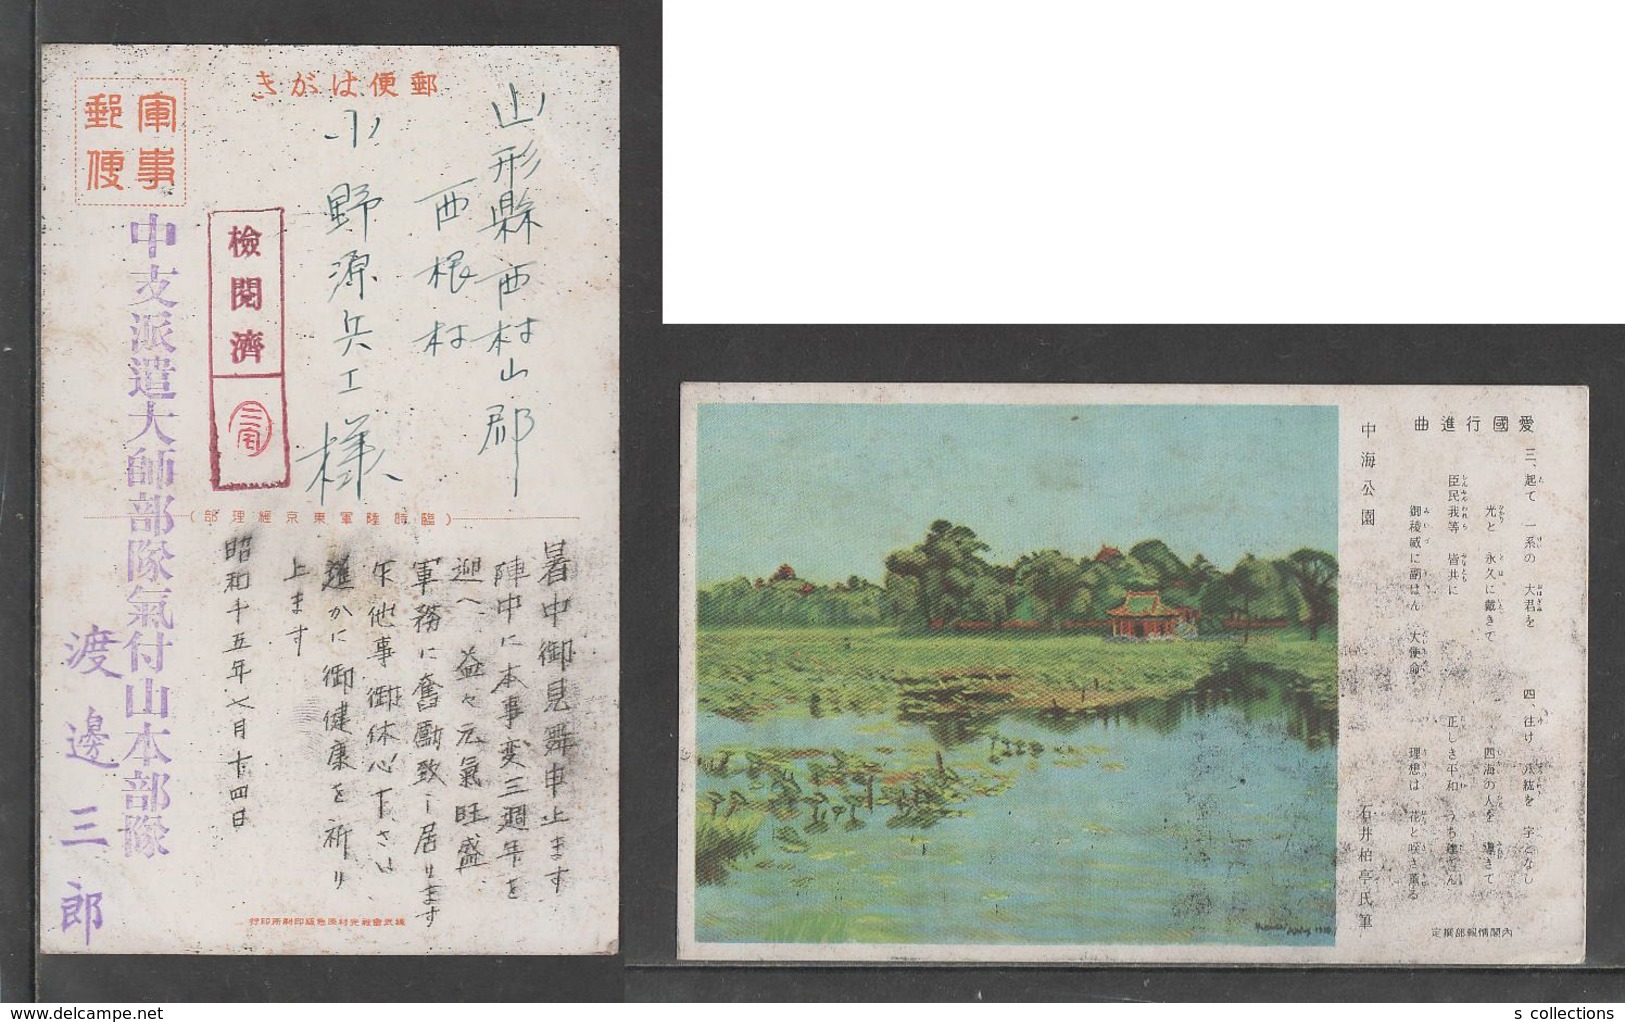 郵便はがき
軍事
郵便
山形縣西村山郡
西根村
小野源兵エ様
檢閱濟
三宅
中支派遣大師部隊氣付山本部隊
渡邊三郎
(臨時陸軍東京經理部)
暑中御見舞申上ます
陣中に本事変三週年を
迎へ 益々元氣旺盛
軍務に奮励致し居ります
他事 御休心下さい
遥かに御健康を祈り
上ます
昭和十五年七月十四日
愛國行進曲
三、起て 一系の 大君を
光と 永久に戴きて
臣民我等 皆共に
御稜威に副はん 大使命
四、往け 八紘を 宇となし
四海の人を 導きて
正しき平和 うち建てん
理想は 花と咲き薫る
內閣情報部撰定
中海公園
石井柏亭氏筆
s collections